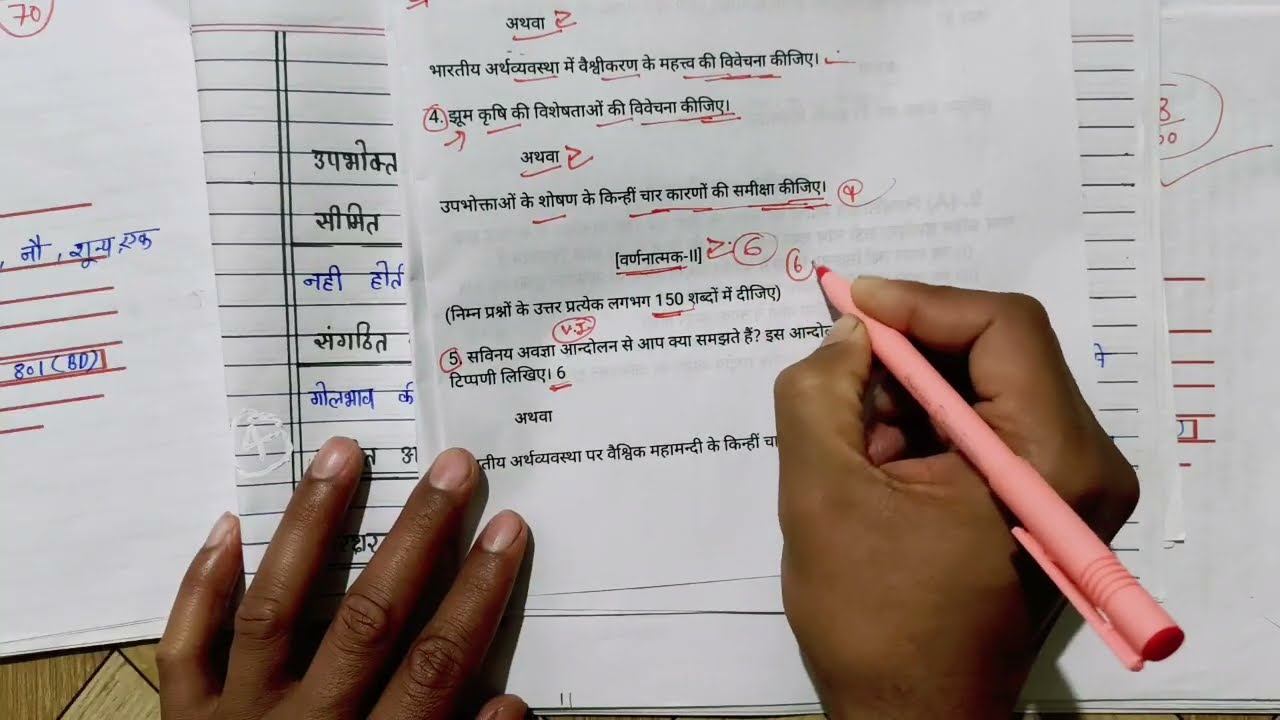 70
अथवा
भारतीय अर्थव्यवस्था में वैश्वीकरण के महत्त्व की विवेचना कीजिए।
4. झूम कृषि की विशेषताओं की विवेचना कीजिए।
अथवा
उपभोक्ताओं के शोषण के किन्हीं चार कारणों की समीक्षा कीजिए। 4
[वर्णनात्मक-II] 6
6
(निम्न प्रश्नों के उत्तर प्रत्येक लगभग 150 शब्दों में दीजिए)
V.I.
5. सविनय अवज्ञा आन्दोलन से आप क्या समझते हैं? इस
टिप्पणी लिखिए। 6
अथवा
अर्थव्यवस्था पर वैश्विक महामन्दी के किन्हीं
उपभोक्त
सीमित
नही
संगठित
गोलभाव
, नौ, शून्य, एक
801 (BD)
4